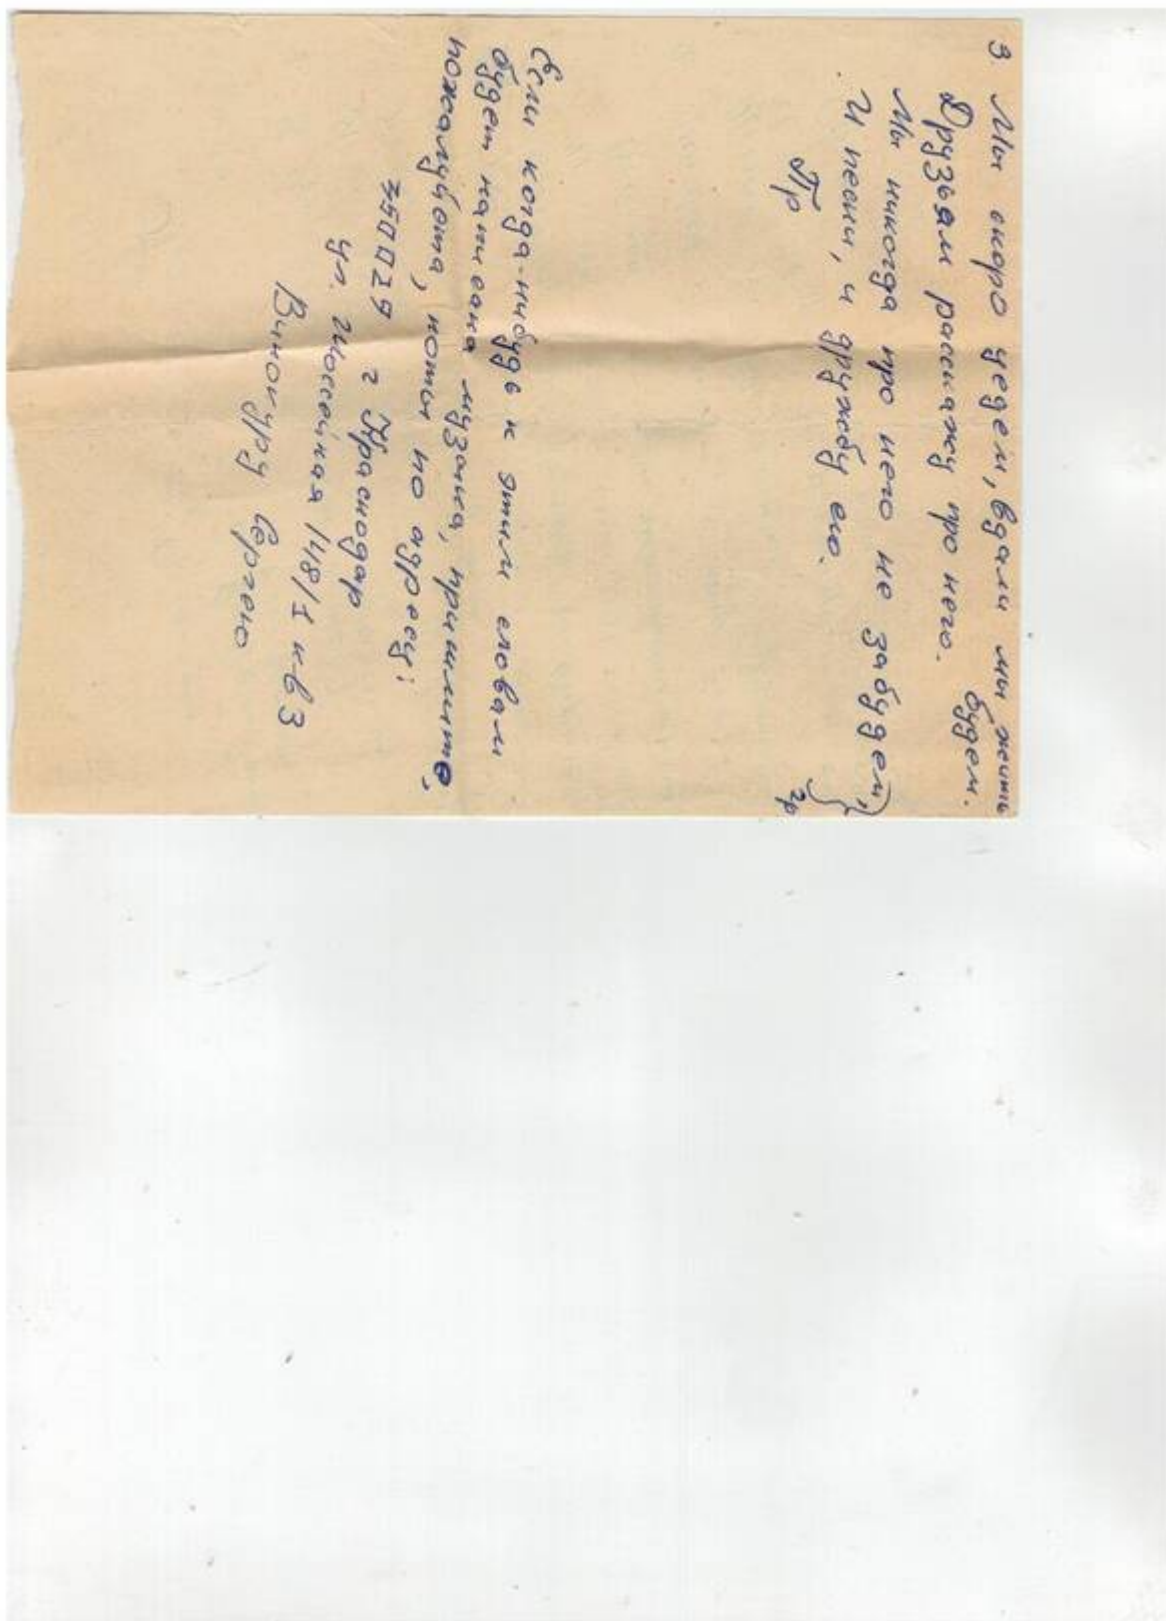 3 Мы скоро уедем, вдали мы жить
будем.
Друзьям расскажу про него.
Мы никогда про него не забудем,
И песни, и дружбу его.
Пр
2р
Если когда-нибудь к этим словам
будет написана музыка, пришлите,
пожалуйста, ноты по адресу:
350029 г Краснодар
ул. Шоссейная 148/1 кв 3
Винокуру Сергею